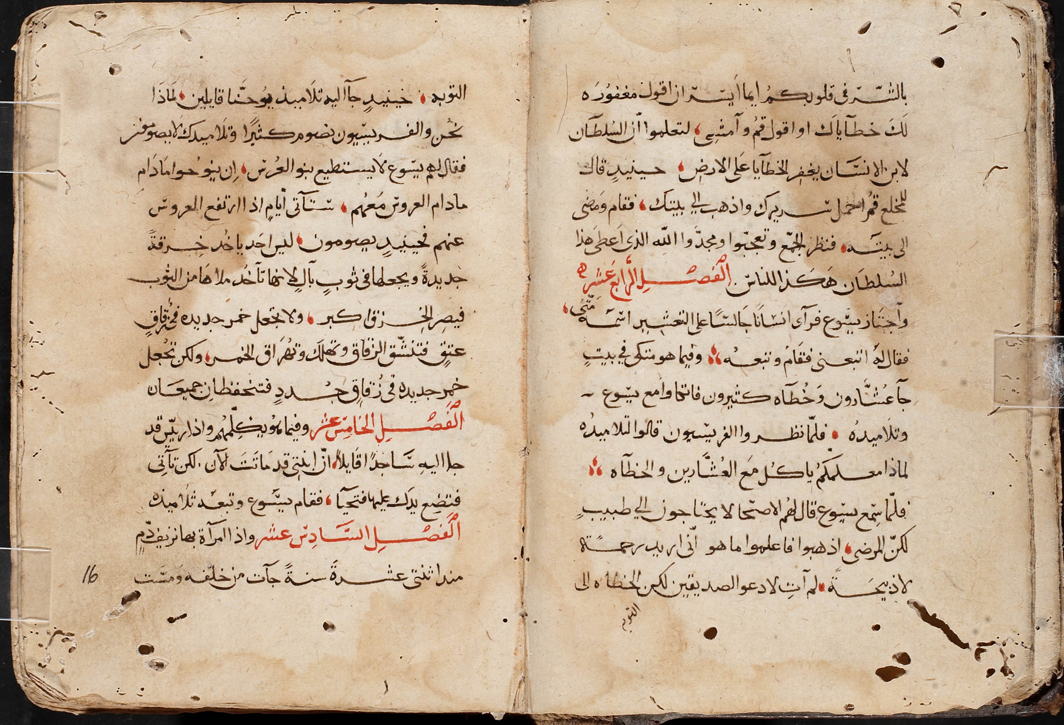 بالشر في قلوبكم ايما أيسر ان اقول مغفوره
لك خطاياك او اقول قم وأمشي، لتعلموا أن السلطان
لابن الانسان يغفر الخطايا على الارض، حينيدٍ قال
للمخلع قم احمل سريرك واذهب الي بيتك، فقام ومضي
الى بيته، فنظر الجمع وتعجبوا ومجدوا الله الذى اعطى هذا
السلطان هكذا للناس الفصل الرابع عشر
وأجتاز يسوع فرآى انسانًا جالسًا على التعشير اسمه متى،
فقال له اتبعنى فقام وتبعه، وفيما هو متكى في بيتٍ
جآ عشارون وخطاه كثيرون فاتكوا مع يسوع
وتلاميده، فلما نظروا الفريسيون قالوا لتلاميده
لماذا معلمكم ياكل مع العشارين والخطاه
فلما سمع يسوع قال لهم الاصحا لا يحتاجون الي طبيبٍ
لكن المرضى، اذهبوا فاعلموا ما هو أنى اريد رحمة
لا ذبيحة، لم آت لادعو الصديقين لكن الخطاه الى
التوبه
التوبه، حينيدٍ جآ اليه تلاميذ يوحنا قايلين، لماذا
نحن والفريسيون نصوم كثيرًا وتلاميدك لا يصومون
فقال لهم يسوع لا يستطيع بنو العرس، ان ينوحوا مادام
مادام العروس معهم، ستآتى أيام اذا ارتفع العروس
عنهم فحينيدٍ يصومون، ليس احد ياخد خرقةً
جديدةً ويجعلها في ثوبٍ بالٍ لانها تاخد ملاها من الثوب
فيصر الخرق اكبر، ولا يجعل خمر جديده في زقاقٍ
عتقٍ فتنشق الزقاق وتهلك وتهراق الخمر، ولكن تجعل
خمر جديده فى زقاق جددٍ فتنحفظان جميعان
الفصل الخامس عشر وفيما هو يكلمهم واذا ريس قد
جا اليه ساجدًا قايلا، ان ابنتى قد ماتت الآن، لكن تآتى
فتضع يدك عليها فتحيا، فقام يسوع وتبعه تلاميده
الفصل السادس عشر واذا امرآة بها نزيف دم
مند اثنتى عشرة سنةً جآت من خلفه ومست
16